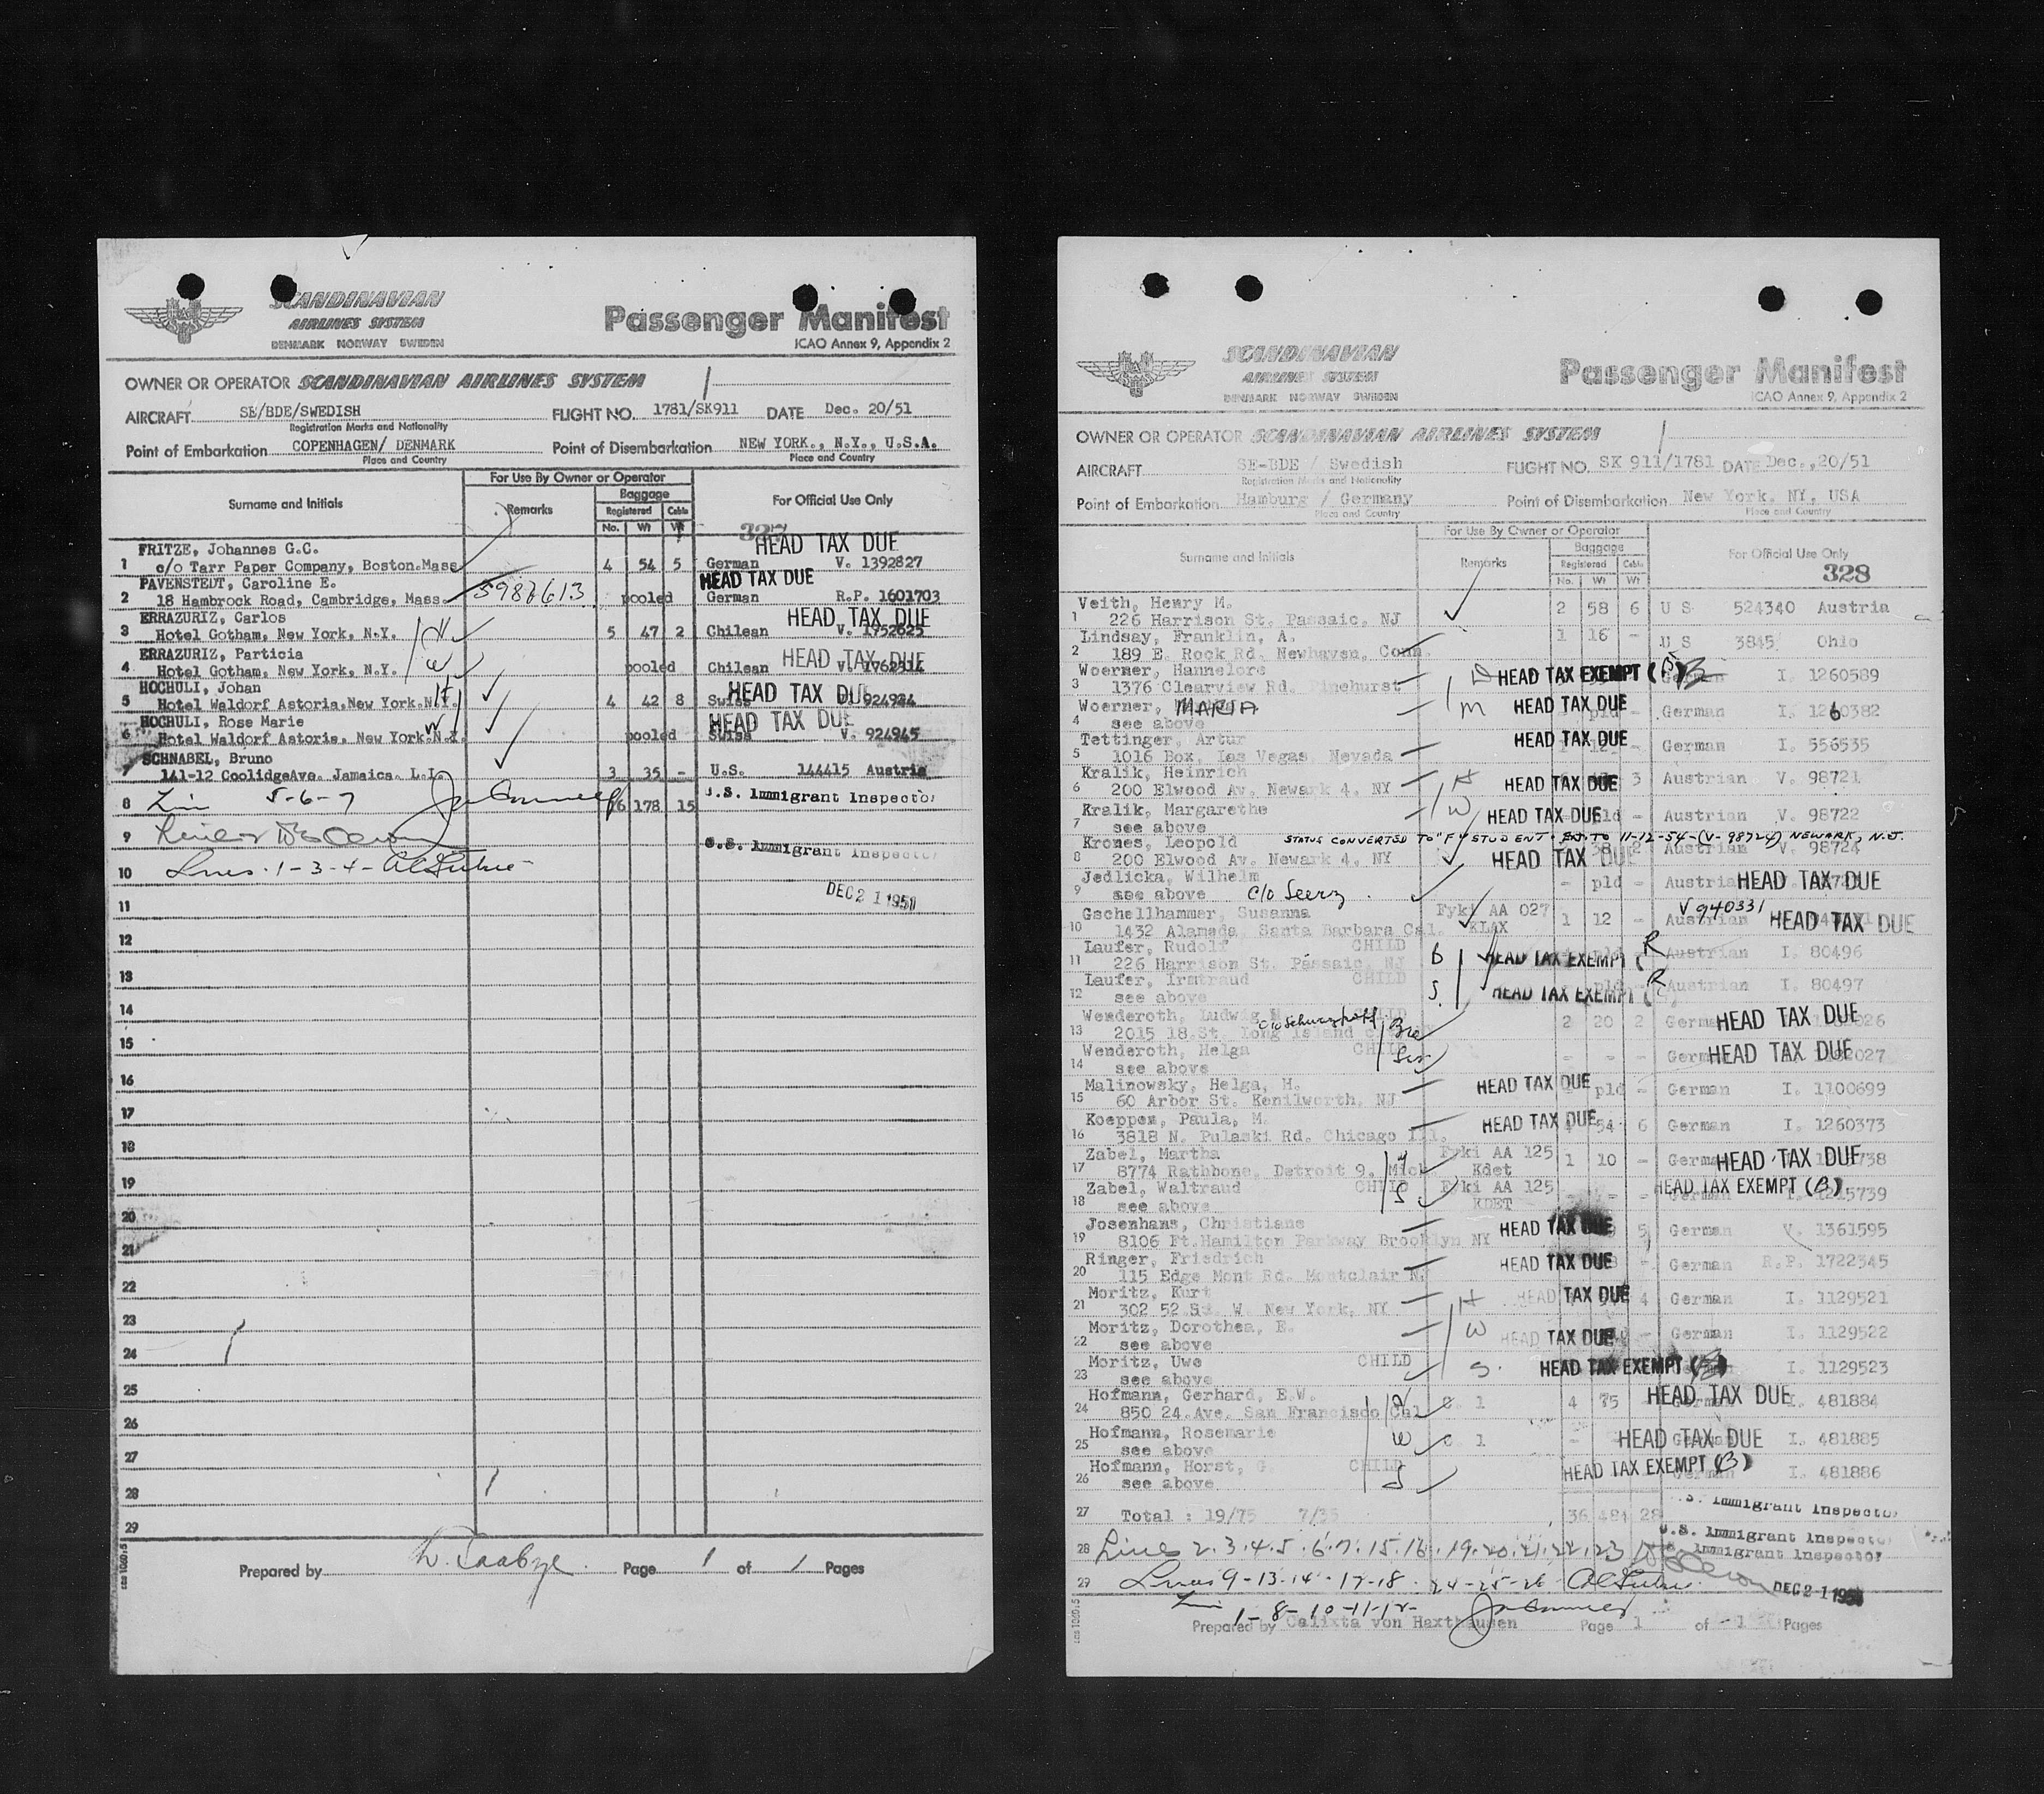 SCANDINAVIAN
AIRLINES SYSTEM
DENMARK NORWAY SWEDEN
Passenger Manifest
ICAO Annex 9, Appendix 2
OWNER OR OPERATOR SCANDINAVIAN AIRLINES SYSTEM
AIRCRAFT SE/BDE/SWEDISH FLIGHT NO. 1781/SK911 DATE Dec. 20/51
Registration Marks and Nationality
Point of Embarkation COPENHAGEN/ DENMARK Point of Disembarkation NEW YORK., N.Y., U.S.A.
Place and Country Place and Country
For Use By Owner or Operator
Surname and Initials Remarks Baggage For Official Use Only
Registered Cabin
No. Wt Wt
327
FRITZE, Johannes G.C. HEAD TAX DUE
1 c/o Tarr Paper Company, Boston.Mass 4 54 5 German V. 1392827
PAVENSTEDT, Caroline E. HEAD TAX DUE
2 18 Hambrock Road, Cambridge, Mass. pooled German R.P. 1601703
ERRAZURIZ, Carlos HEAD TAX DUE
3 Hotel Gotham, New York, N.Y. 5 47 2 Chilean V. 1752625
ERRAZURIZ, Particia HEAD TAX DUE
4 Hotel Gotham, New York, N.Y. W pooled Chilean
HOCHULI, Johan H HEAD TAX DUE
5 Hotel Waldorf Astoria.New York.N.Y. 4 42 8 Swiss
HOCHULI, Rose Marie W HEAD TAX DUE
6 Hotel Waldorf Astoria. New York.N.Y. pooled Swiss V. 924945
SCHNABEL, Bruno
7 141-12 CoolidgeAve. Jamaica. L.I. 3 35 - U.S. 144415 Austria
8 5-6-7 16 178 15 U.S. Immigrant Inspector
9 U.S. Immigrant Inspector
10 Lines 1-3-4-
DEC 21 1951
11
12
13
14
15
16
17
18
19
20
21
22
23
24
25
26
27
28
29
Prepared by Page 1 of 1 Pages
SCANDINAVIAN
AIRLINES SYSTEM
DENMARK NORWAY SWEDEN
Passenger Manifest
ICAO Annex 9, Appendix 2
OWNER OR OPERATOR SCANDINAVIAN AIRLINES SYSTEM
AIRCRAFT SE-BDE / Swedish FLIGHT NO. SK 911/1781 DATE Dec.,20/51
Registration Marks and Nationality
Point of Embarkation Hamburg / Germany Point of Disembarkation New York. NY, USA
Place and Country Place and Country
For Use By Owner or Operator
Surname and Initials Remarks Baggage For Official Use Only
Registered Cabin
No. Wt Wt
328
Veith, Henry M. 2 58 6 U S 524340 Austria
1 226 Harrison St. Passaic, NJ
Lindsay, Franklin, A. 1 16 - U S 3845 Ohio
2 189 E. Rock Rd. Newhaven, Conn.
Woerner, Hannelore HEAD TAX EXEMPT (B) I. 1260589
3 1376 Clearview Rd. Pinehurst
Woerner, MARIA M HEAD TAX DUE pld - German
4 see above
Tettinger, Artur HEAD TAX DUE German I. 556535
5 1016 Box, Las Vegas, Nevada
Kralik, Heinrich H HEAD TAX DUE 3 Austrian V. 98721
6 200 Elwood Av. Newark 4. NY
Kralik, Margarethe W HEAD TAX DUE pld - Austrian V. 98722
7 see above
Krones, Leopold STATUS CONVERTED TO "F" STUDENT - EXT. TO 11-12-54-(V-98724) NEWARK, N.J.
8 200 Elwood Av. Newark 4. NY HEAD TAX DUE 38 2 Austrian V. 98724
Jedlicka, Wilhelm - pld - Austrian HEAD TAX DUE
9 see above c/o Seerz
Gschellhammer, Susanna Fyki AA 027 1 12 - V 940331 Austrian HEAD TAX DUE
10 1432 Alameda, Santa Barbara Cal. KLAX
Laufer, Rudolf CHILD B HEAD TAX EXEMPT ( R Austrian I. 80496
11 226 Harrison St. Passaic, NJ
Laufer, Irmtraud CHILD S. HEAD TAX EXEMPT ( R pld - Austrian I. 80497
12 see above
Wenderoth, Ludwig CHILD Bro 2 20 2 German HEAD TAX DUE
13 2015 18.St. Long Island
Wenderoth, Helga CHILD Sis - - - German HEAD TAX DUE
14 see above
Malinowsky, Helga, H. HEAD TAX DUE pld - German I. 1100699
15 60 Arbor St. Kenilworth, NJ
Koeppen, Paula, M. HEAD TAX DUE 54 6 German I. 1260373
16 3818 N. Pulaski Rd. Chicago Ill.
Zabel, Martha Fyki AA 125 1 10 - German HEAD TAX DUE
17 8774 Rathbone, Detroit 9. Mich Kdet
Zabel, Waltraud CHILD S Fyki AA 125 - - - German HEAD TAX EXEMPT (B) I. 1215739
18 see above KDET
Josenhans, Christiane HEAD TAX DUE 5 German V. 1361595
19 8106 Ft.Hamilton Parkway Brooklyn NY
Ringer, Friedrich HEAD TAX DUE - German R.P. 1722345
20 115 Edge Mont Rd. Montclair N.
Moritz, Kurt H HEAD TAX DUE 4 German I. 1129521
21 302 52.St. W. New York, NY
Moritz, Dorothea, E. W HEAD TAX DUE German I. 1129522
22 see above
Moritz, Uwe CHILD S. HEAD TAX EXEMPT (B) I. 1129523
23 see above
Hofmann, Gerhard, E.W. H C. 1 4 75 German HEAD TAX DUE I. 481884
24 850 24.Ave. San Francisco Cal
Hofmann, Rosemarie W C. 1 - HEAD TAX DUE I. 481885
25 see above
Hofmann, Horst, G. CHILD S HEAD TAX EXEMPT (B) German I. 481886
26 see above
27 Total : 19/75 7/35 36 484 28 U.S. Immigrant Inspector
U.S. Immigrant Inspector
28 Lines 2.3.4.5.6.7.15.16.19.20.21.22.23 Immigrant Inspector
29 Lines 9-13-14-17-18-24-25-26 DEC 21 1951
1-8-10-11-12-
Prepared by Calixta von Haxthausen Page 1 of 1 Pages